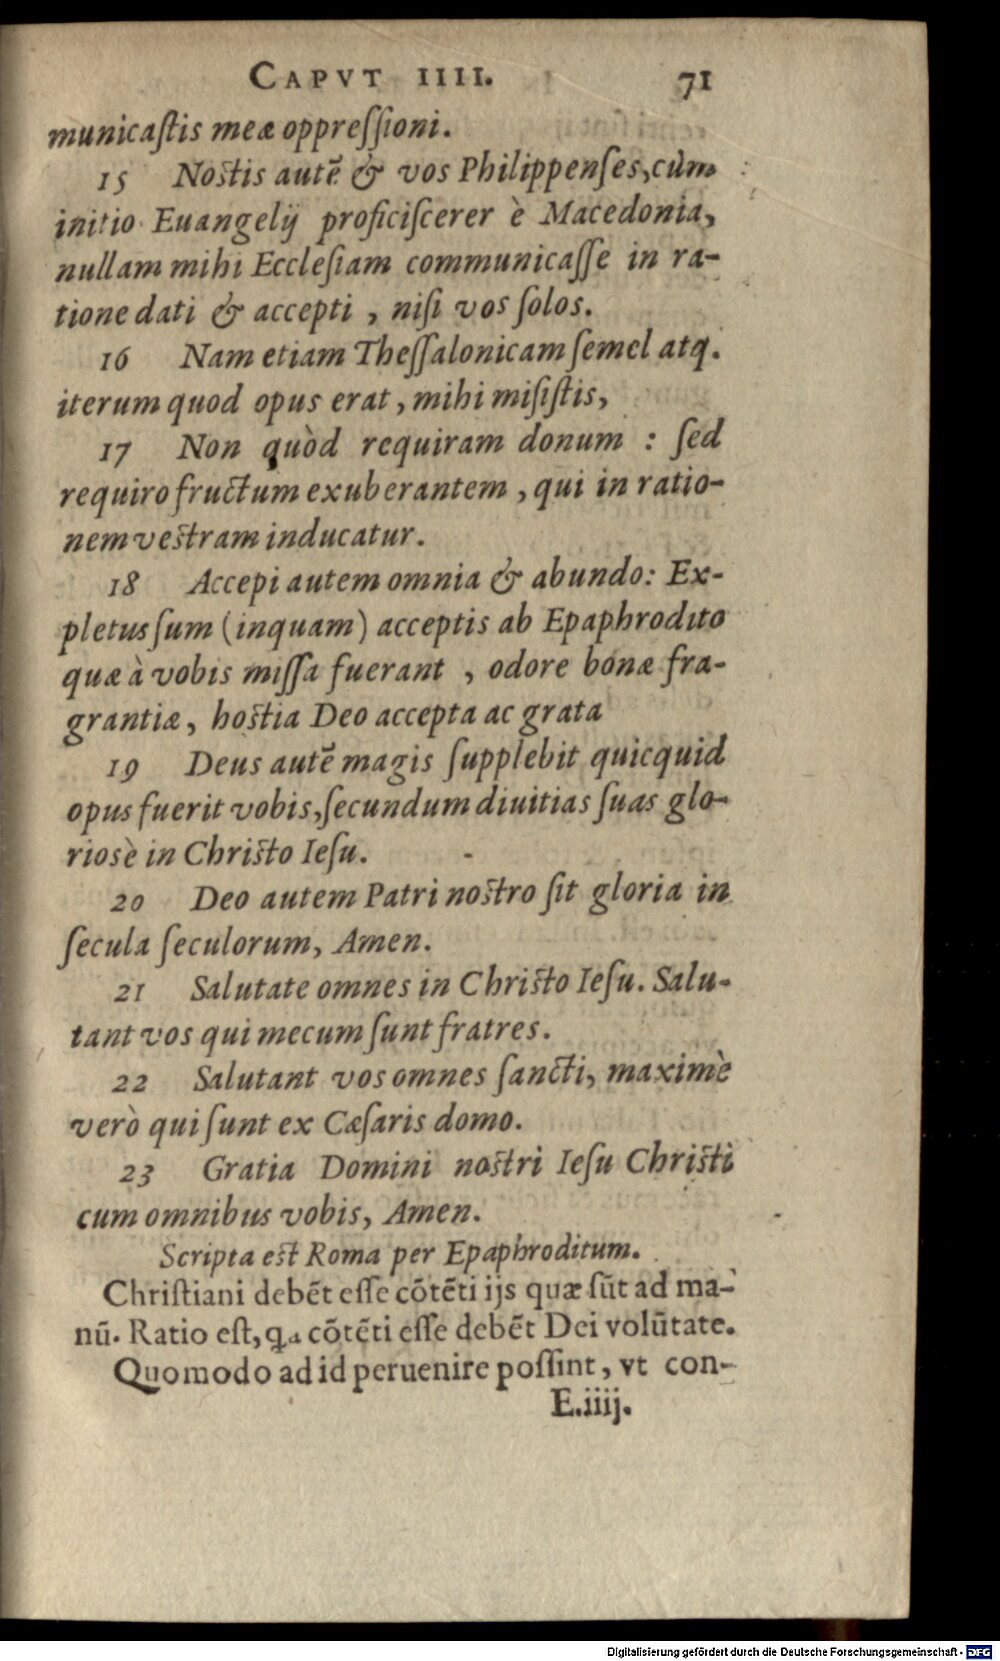 CAPVT IIII. 71
municaſtis meæ oppreſſioni.
15 Noſtis autẽ & vos Philippenſes, cùm
initio Euangelij proficiſcerer è Macedonia,
nullam mihi Eccleſiam communicaſſe in ra-
tione dati & accepti, niſi vos ſolos.
16 Nam etiam Theſſalonicam ſemel atq.
iterum quod opus erat, mihi miſiſtis,
17 Non quòd requiram donum : ſed
requiro fructum exuberantem, qui in ratio-
nem veſtram inducatur.
18 Accepi autem omnia & abundo: Ex-
pletus ſum (inquam) acceptis ab Epaphrodito
quæ à vobis miſſa fuerant, odore bonæ fra-
grantiæ, hoſtia Deo accepta ac grata
19 Deus autẽ magis ſupplebit quicquid
opus fuerit vobis, ſecundum diuitias ſuas glo-
riosè in Chriſto Ieſu.
20 Deo autem Patri noſtro ſit gloria in
ſecula ſeculorum, Amen.
21 Salutate omnes in Chriſto Ieſu. Salu-
tant vos qui mecum ſunt fratres.
22 Salutant vos omnes ſancti, maximè
verò qui ſunt ex Cæſaris domo.
23 Gratia Domini noſtri Ieſu Chriſti
cum omnibus vobis, Amen.
Scripta eſt Roma per Epaphroditum.
Chriſtiani debẽt eſſe cõtẽti ijs quæ ſũt ad ma-
nũ. Ratio eſt, qa cõtẽti eſſe debẽt Dei volũtate.
Quomodo ad id peruenire poſſint, vt con-
E.iiij.
Digitalisierung gefördert durch die Deutsche Forschungsgemeinschaft - DFG